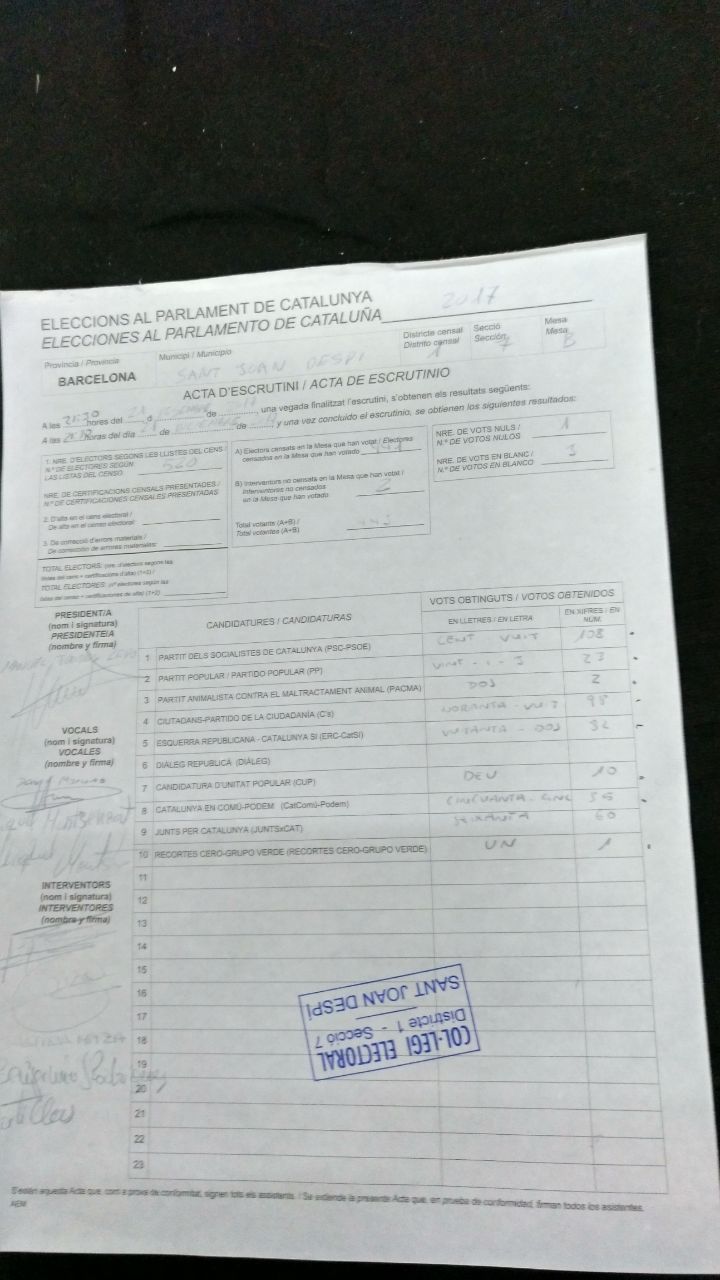 ELECCIONS AL PARLAMENT DE CATALUNYA
ELECCIONES AL PARLAMENTO DE CATALUÑA 2017
Provincia / Provincia
BARCELONA
Municipi / Municipio
SANT JOAN DESPI
Districte censal
Distrito censal
1
Secció
Sección
7
Mesa
Mesa
B
ACTA D'ESCRUTINI / ACTA DE ESCRUTINIO
A les 21:30 hores del 21 d de , una vegada finalitzat l'escrutini, s'obtenen els resultats següents:
A las horas del día 21 de DICIEMBRE de y una vez concluido el escrutinio, se obtienen los siguientes resultados:
1. NRE. D'ELECTORS SEGONS LES LLISTES DEL CENS /
N.º DE ELECTORES SEGÚN
LAS LISTAS DEL CENSO
NRE. DE CERTIFICACIONS CENSALS PRESENTADES /
N.º DE CERTIFICACIONES CENSALES PRESENTADAS
2. D'alta en el cens electoral /
De alta en el censo electoral:
3. De correcció d'errors materials /
De corrección de errores materiales:
TOTAL ELECTORS: (nre. d'electors segons les
llistes del cens + certificacions d'alta) (1+2) /
TOTAL ELECTORES: (nº electores según las
listas del censo + certificaciones de alta) (1+2)
A) Electors censats en la Mesa que han votat / Electores
censados en la Mesa que han votado
B) Interventors no censats en la Mesa que han votat /
Interventores no censados
en la Mesa que han votado 2
Total votants (A+B) /
Total votantes (A+B)
NRE. DE VOTS NULS /
N.º DE VOTOS NULOS 1
NRE. DE VOTS EN BLANC /
N.º DE VOTOS EN BLANCO 3
PRESIDENT/A
(nom i signatura)
PRESIDENTE/A
(nombre y firma)
VOCALS
(nom i signatura)
VOCALES
(nombre y firma)
INTERVENTORS
(nom i signatura)
INTERVENTORES
(nombre y firma)
CANDIDATURES / CANDIDATURAS
VOTS OBTINGUTS / VOTOS OBTENIDOS
EN LLETRES / EN LETRA
EN XIFRES / EN NÚM.
1 PARTIT DELS SOCIALISTES DE CATALUNYA (PSC-PSOE) CENT VUIT 108
2 PARTIT POPULAR / PARTIDO POPULAR (PP) VINT - I - 3 23
3 PARTIT ANIMALISTA CONTRA EL MALTRACTAMENT ANIMAL (PACMA) DOS 2
4 CIUTADANS-PARTIDO DE LA CIUDADANÍA (C's) NORANTA - VUIT 98
5 ESQUERRA REPUBLICANA - CATALUNYA SÍ (ERC-CatSí) VUITANTA DOS 82
6 DIÀLEG REPUBLICÀ (DIÀLEG)
7 CANDIDATURA D'UNITAT POPULAR (CUP) DEU 10
8 CATALUNYA EN COMÚ-PODEM (CatComú-Podem) CINCUANTA - CINC 55
9 JUNTS PER CATALUNYA (JUNTSxCAT) SEIXANTA 60
10 RECORTES CERO-GRUPO VERDE (RECORTES CERO-GRUPO VERDE) UN 1
11
12
13
14
15
16
17
18
19
20
21
22
23
COL·LEGI ELECTORAL
Districte 1 - Secció 7
SANT JOAN DESPÍ
S'estén aquesta Acta que, com a prova de conformitat, signen tots els assistents. / Se extiende la presente Acta que, en prueba de conformidad, firman todos los asistentes.